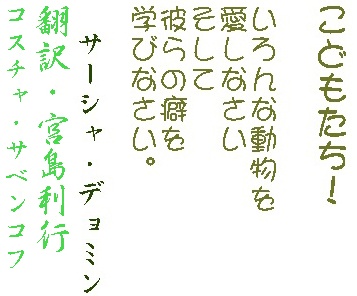 こどもたち！
いろんな動物を
愛しなさい
そして
彼らの癖を
学びなさい。
サーシャ・デョミン
翻訳・宮島利行
コスチャ・サベンコフ